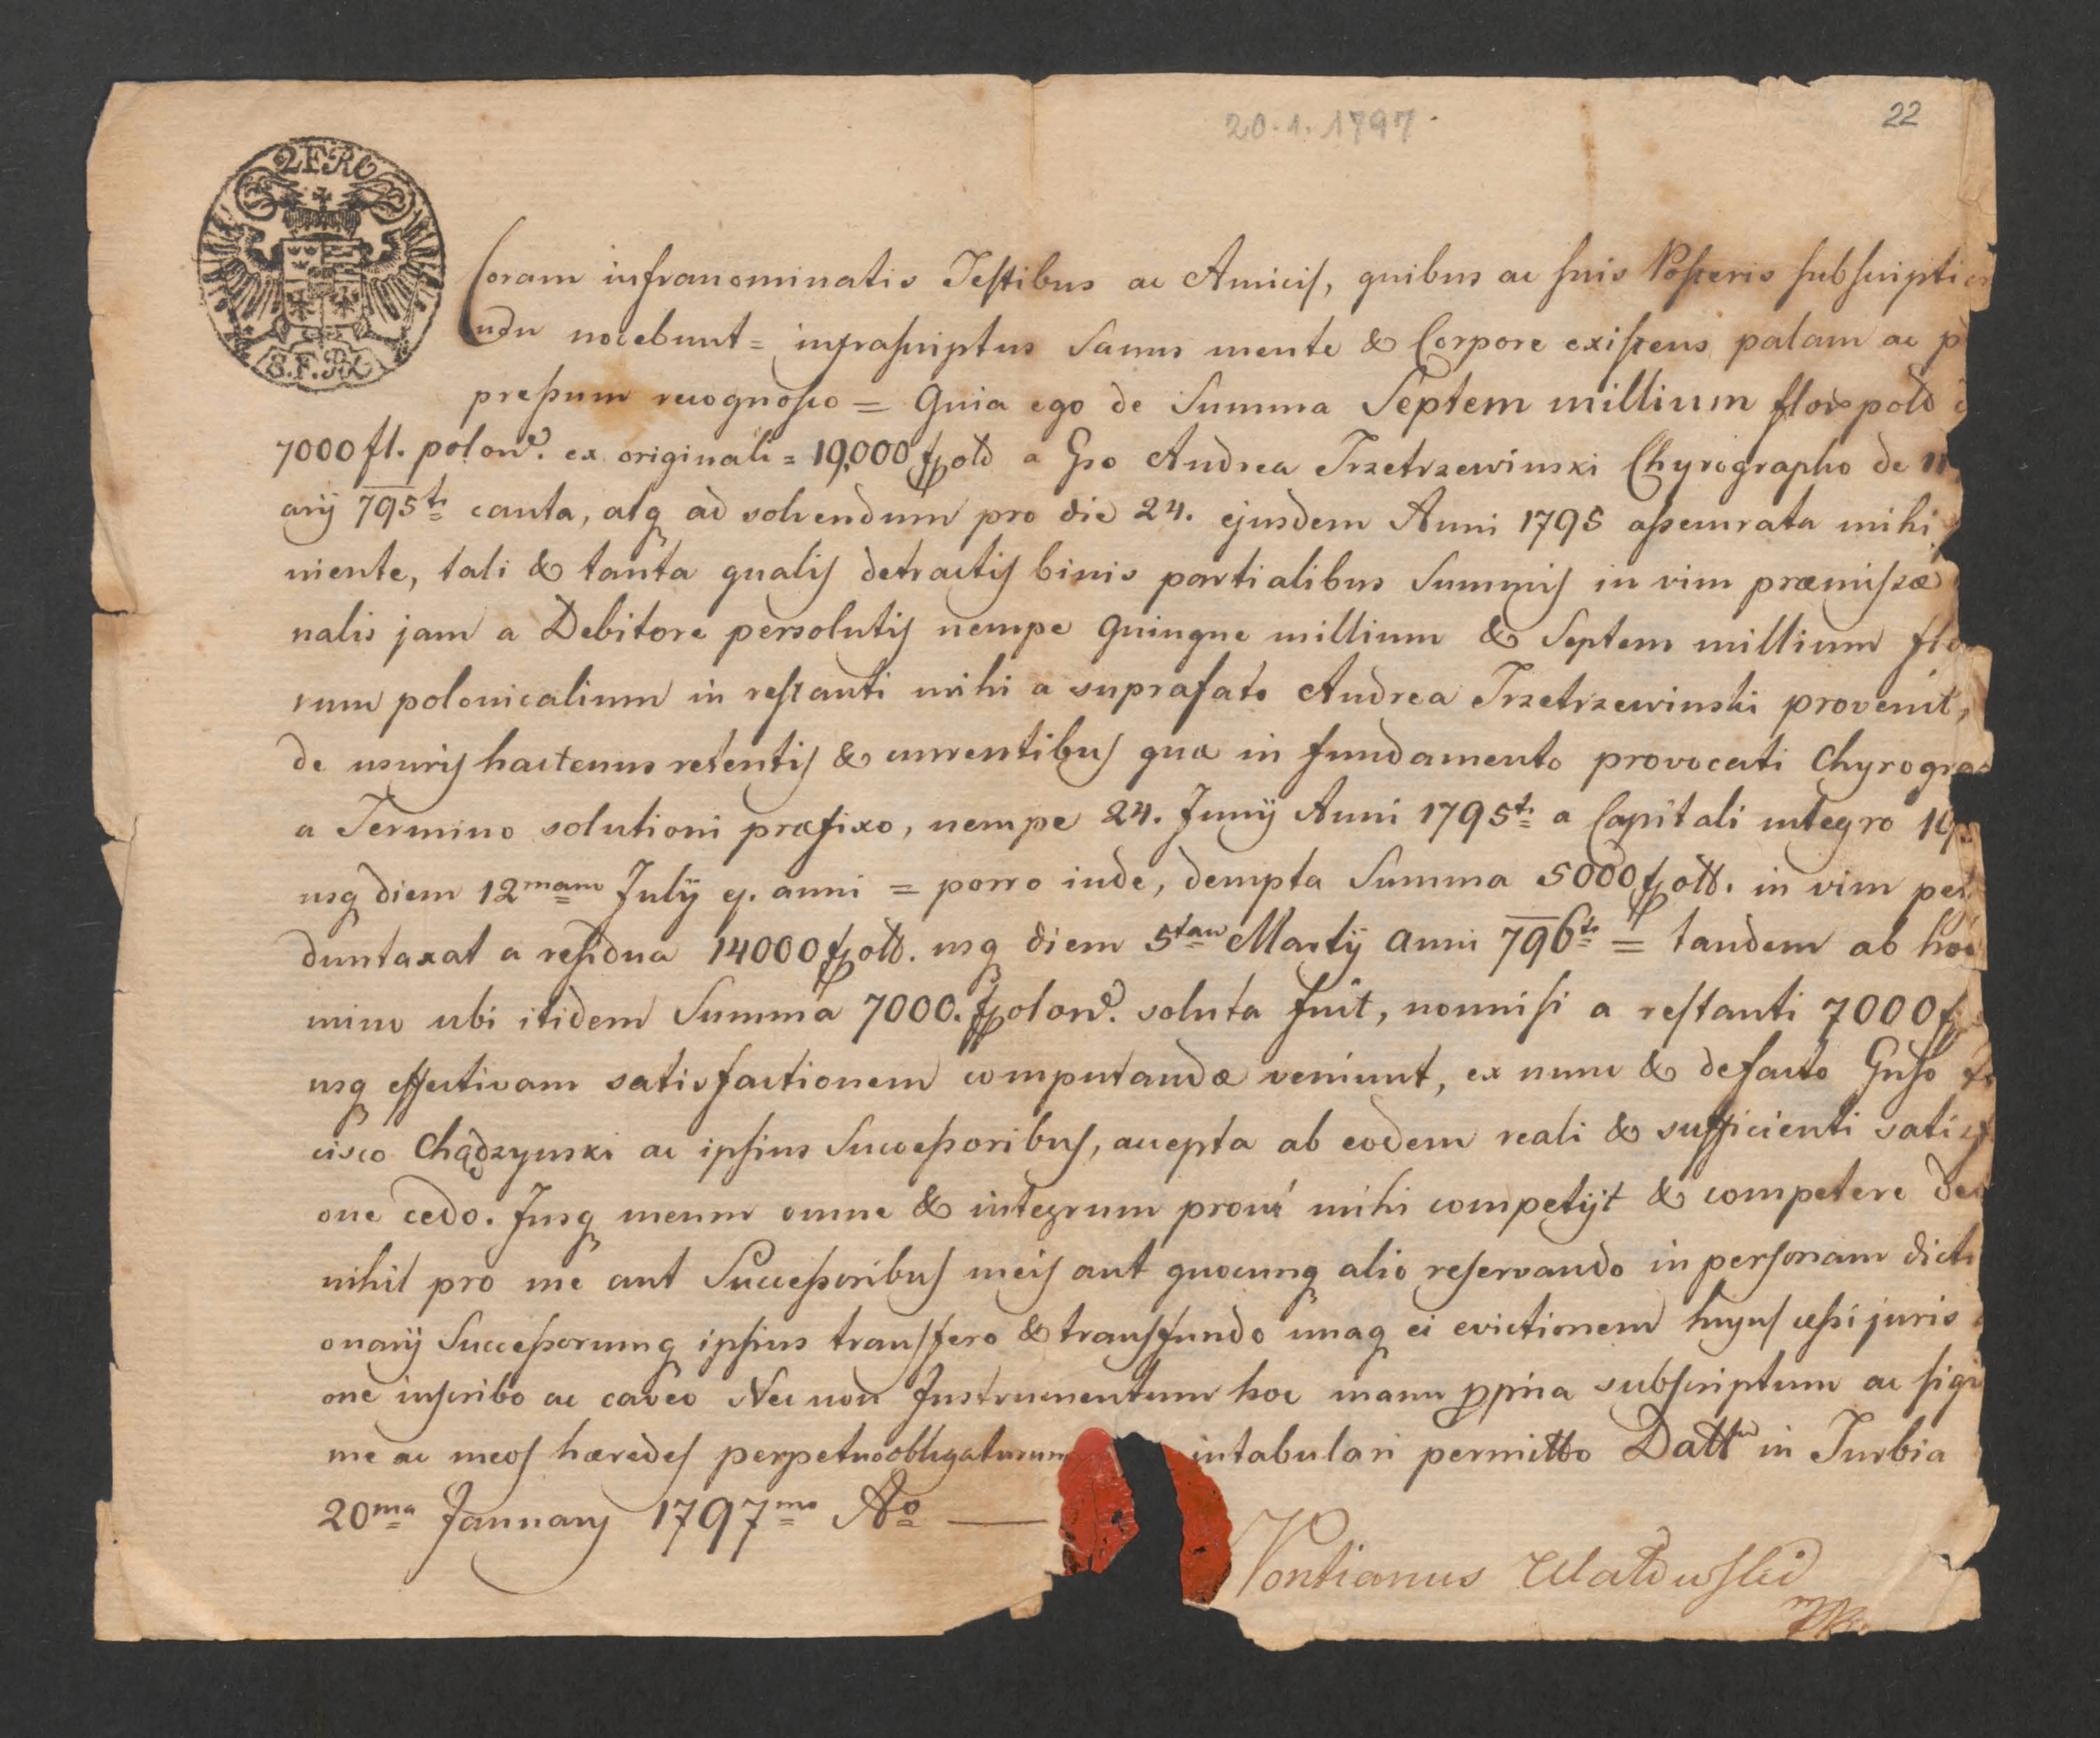 20.1.1797.
22
2 F RC
S.F.RC
Coram infranominatis Testibus ac Amicis, quibus ac suis Posteris subscripti
nocebunt = infrascriptus Sanus mente & Corpore existens palam ac
pressum recognosco = Quia ego de Summa Septem millium flor pold
7000 fl. polon. ex originali = 19,000 fpold a Gso Andrea Trzetrzewinski Chyrographo de
arij 795ti cauta, atq ad solvendum pro die 24. ejusdem Anni 1795 assecurata mihi
niente, tali & tanta qualis detractis binis partialibus Summis in vim præmissæ
nalis jam a Debitore persolutis nempe Quinque millium & Septem millium flo
rum polonicalium in restanti mihi a suprafato Andrea Trzetrzewinski provenit,
de usuris hactenus retentis & currentibus qua in fundamento provocati Chyrogra
a Termino solutioni præfixo, nempe 24. Junij Anni 1795ti a Capitali integro 19
usq diem 12mam Julij ej. anni = porro inde, dempta Summa 5000 fpold. in vim
duntaxat a residua 14000 fpold. usq diem 5tam Martij Anni 796ti = tandem ab hoc
mino ubi itidem Summa 7000. fpolon. soluta fuit, nonnisi a restanti 7000 f
usq effectivam satisfactionem computandæ veniunt, ex nunc & defacto Gnso
cisco Chądzynski ac ipsius Successoribus, accepta ab eodem reali & sufficienti satisf
one cedo. Jusq meum omne & integrum prout mihi competijt & competere
nihil pro me aut Successoribus meis aut quocunq alio reservando in personam dicti
onarij Successorumq ipsius transfero & transfundo unaq ei evictionem hujus cessi juris
one inscribo ac caveo Nec non Instrumentum hoc manu ppria subscriptum ac sigi
me ac meos hæredes perpetuo obligaturum intabulari permitto Datt in Turbia
20ma January 1797mo Ao —
Pontianus